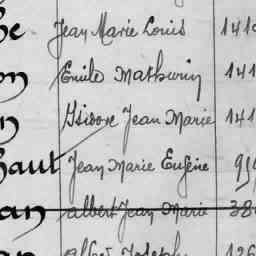 Jean Marie Louis 141
Emile Mathurin 141
Isidore Jean Marie 141
haut Jean Marie Eugène
an albert Jean Marie 38
Joseph 126